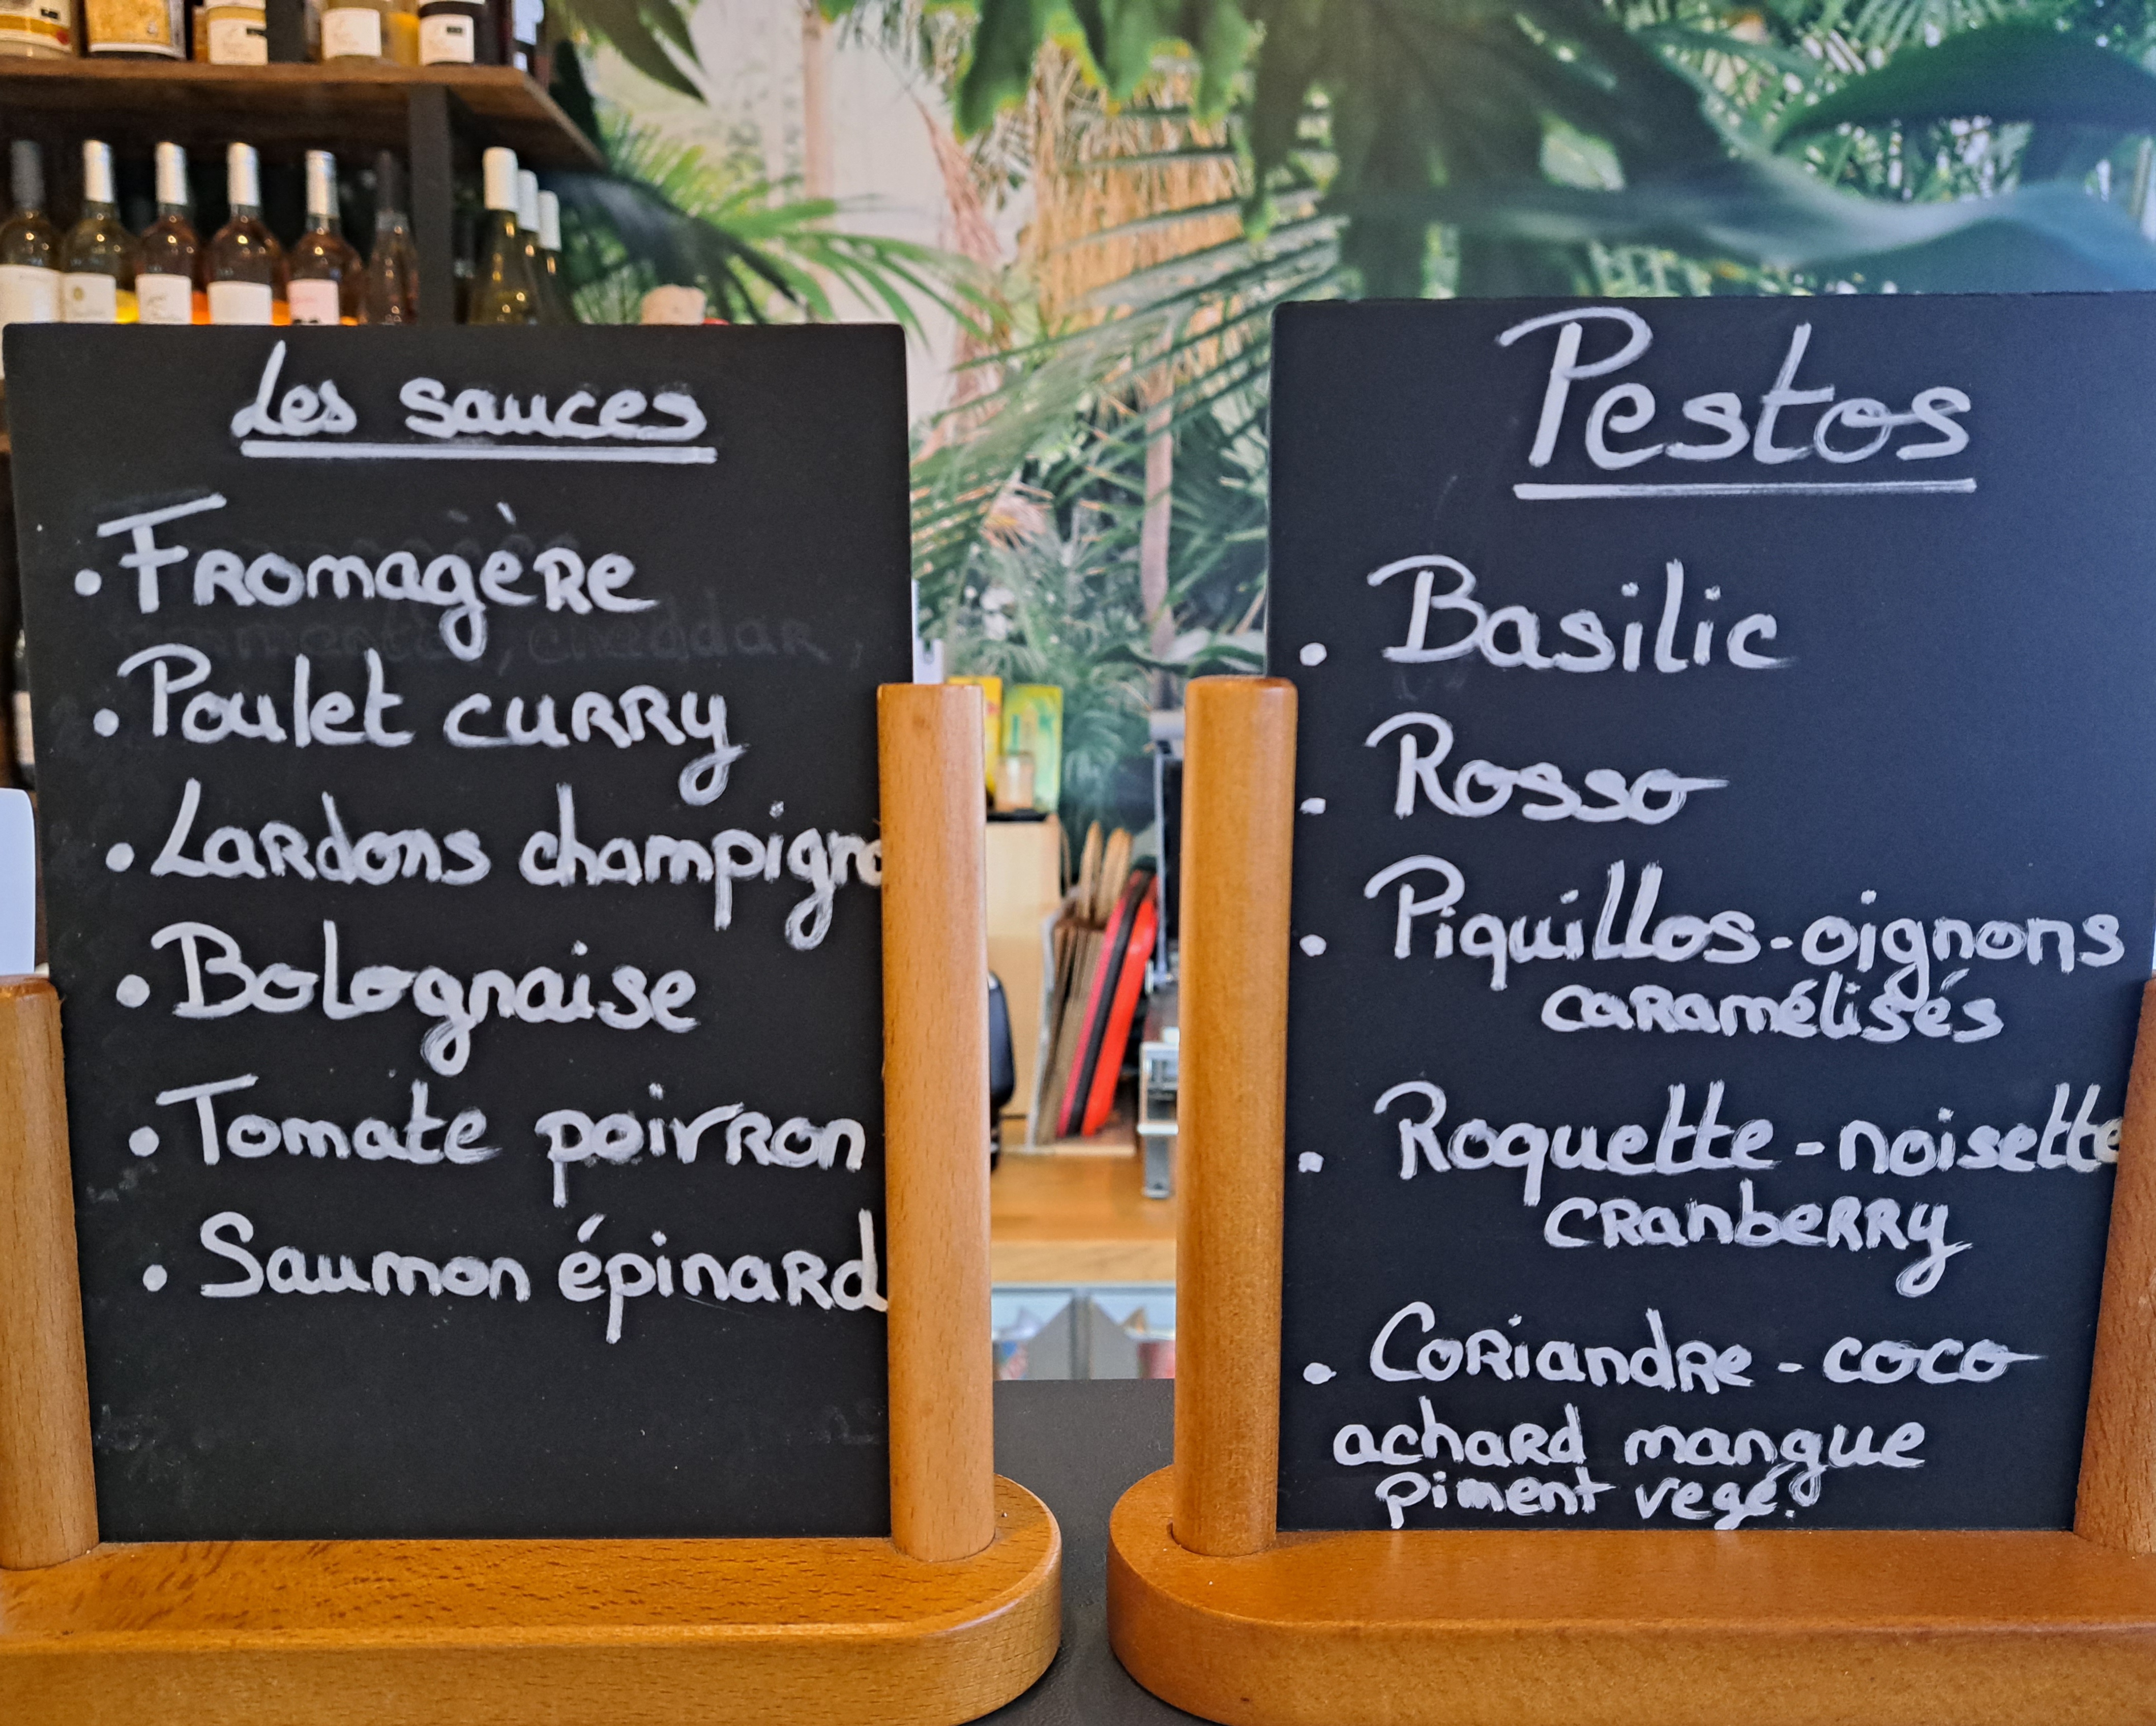 Les sauces
• Fromagère
• Poulet curry
• Lardons champigno
• Bolognaise
• Tomate poivron
• Saumon épinard
Pestos
• Basilic
• Rosso
• Piquillos-oignons
caramélisés
• Roquette-noisette
cranberry
• Coriandre-coco
achard mangue
piment vegé.